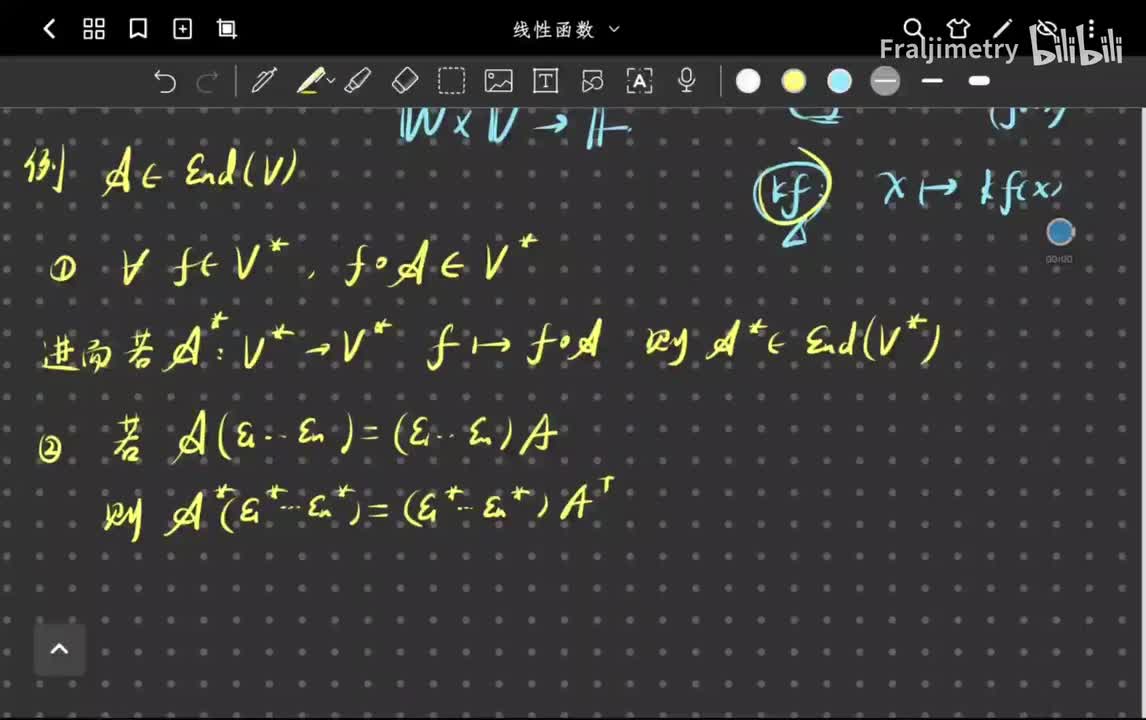 线性函数
Fraljimetry bilibili
W × V → F
kf: x ↦ kf(x)
00:00
例 𝒜 ∈ End(V)
① ∀ f ∈ V*, f∘𝒜 ∈ V*
进而若 𝒜*: V* → V* f ↦ f∘𝒜 则 𝒜* ∈ End(V*)
② 若 𝒜(ε₁…εₙ) = (ε₁…εₙ)A
则 𝒜*(ε₁*…εₙ*) = (ε₁*…εₙ*)Aᵀ